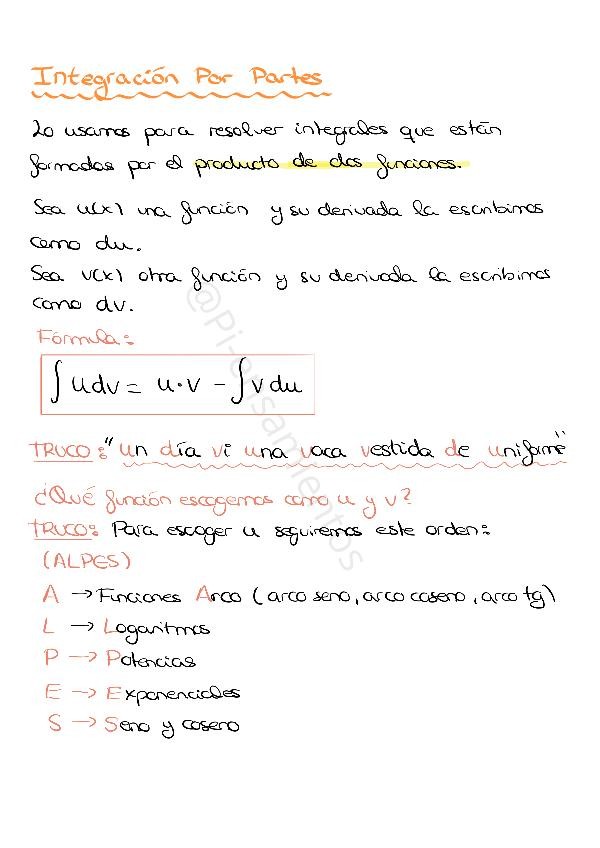 Integración Por Partes
Lo usamos para resolver integrales que están
formadas por el producto de dos funciones.
Sea u(x) una función y su derivada la escribimos
como du.
Sea v(x) otra función y su derivada la escribimos
como dv.
Fórmula:
∫udv = u·v - ∫vdu
TRUCO: "Un día vi una vaca vestida de uniforme"
¿Qué función escogemos como u y v?
TRUCO: Para escoger u seguiremos este orden:
(ALPES)
A → Funciones Arco (arco seno, arco coseno, arco tg)
L → Logaritmos
P → Potencias
E → Exponenciales
S → Seno y coseno
@Pi-ensamientos